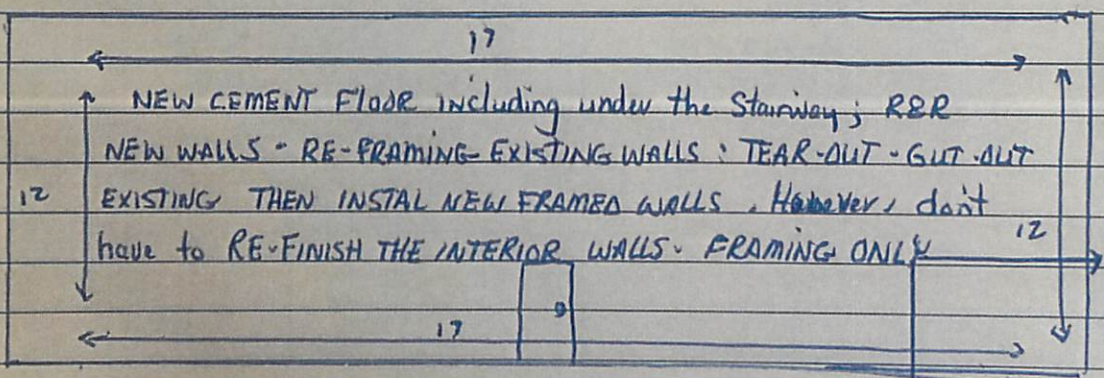 17
NEW CEMENT FlOOR including under the Stairway; R&R
NEW WALLS - RE-FRAMING EXISTING WALLS : TEAR-OUT - GUT-OUT
12 EXISTING THEN INSTAL NEW FRAMED WALLS. However, don't
have to RE-FINISH THE INTERIOR WALLS - FRAMING ONLY 12
17